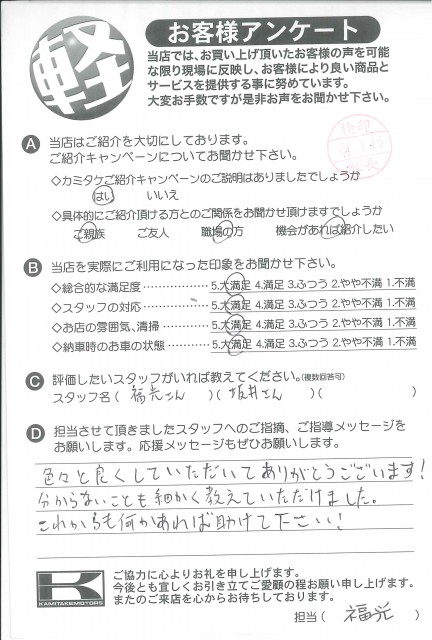 軽
お客様アンケート
当店では、お買い上げ頂いたお客様の声を可能
な限り現場に反映し、お客様により良い商品と
サービスを提供する事に努めています。
大変お手数ですが是非お声をお聞かせ下さい。
A 当店はご紹介を大切にしております。
ご紹介キャンペーンについてお聞かせ下さい。
◇カミタケご紹介キャンペーンのご説明はありましたでしょうか
はい いいえ
◇具体的にご紹介頂ける方とのご関係をお聞かせ頂けますでしょうか
ご親族 ご友人 職場の方 機会があれば紹介したい
B 当店を実際にご利用になった印象をお聞かせ下さい。
◇総合的な満足度 ………… 5.大満足 4.満足 3.ふつう 2.やや不満 1.不満
◇スタッフの対応 ………… 5.大満足 4.満足 3.ふつう 2.やや不満 1.不満
◇お店の雰囲気、清掃 ……… 5.大満足 4.満足 3.ふつう 2.やや不満 1.不満
◇納車時のお車の状態 ……… 5.大満足 4.満足 3.ふつう 2.やや不満 1.不満
C 評価したいスタッフがいれば教えてください。(複数回答可)
スタッフ名( 福光さん )( 坂井さん )( )
D 担当させて頂きましたスタッフへのご指摘、ご指導メッセージを
お願いします。応援メッセージもぜひお願いします。
色々と良くしていただいてありがとうございます!
分からないことも細かく教えていただけました。
これからも何かあれば助けて下さい!
K
KAMITAKEMOTORS
ご協力に心よりお礼を申し上げます。
今後とも宜しくお引き立てご愛顧の程お願い申し上げます。
またのご来店を心からお待ちしております。
担当( 福光 )